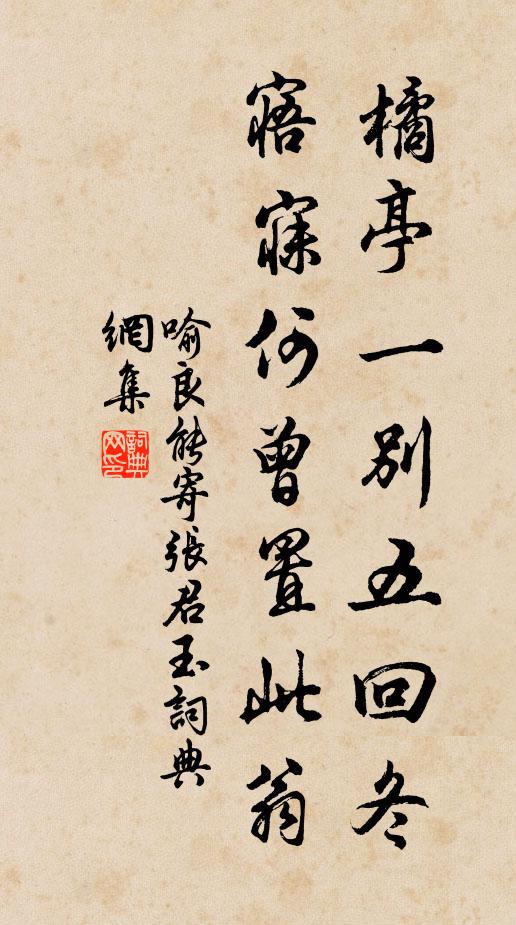 橘亭一別五回冬
寤寐何曾置此翁
喻良能寄張君玉詞典
網集
詞典网印